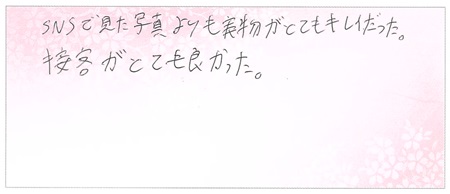 SNSで見た写真よりも実物がとてもキレイだった。
接客がとても良かった。